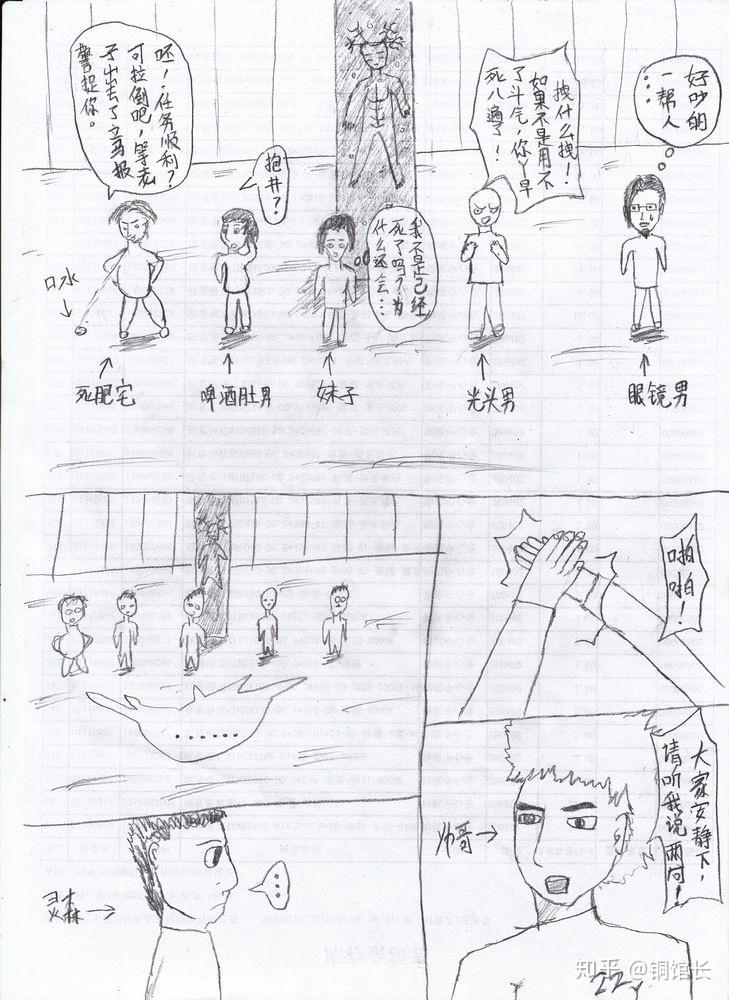 呸！任务顺利？
可拉倒吧，等老
子出去了立马报
警捉你。
抱井？
我不是已经
死了吗？为
什么还会…
拽什么拽！
如果不是用不
了斗气，你丫早
死八遍了！
好吵的
一帮人
……
口水
死肥宅
啤酒肚男
妹子
光头男
眼镜男
……
啪
啪！
大家安静下，
请听我说两句！
帅哥
…
灵森
22
知乎 @铜馆长